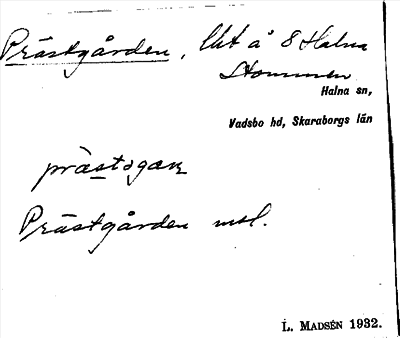 Prästgården, lht å 8 Halna
Stommen
Halna sn,
Vadsbo hd, Skaraborgs län
Prästgården msl.
L. MADSÉN 1932.